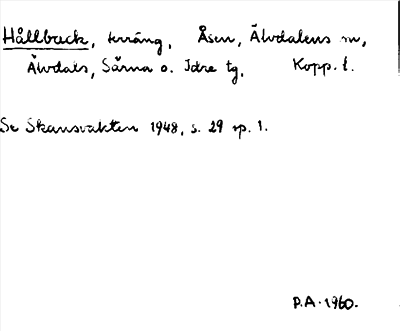 Hållbuck, terräng, Åsen, Älvdalens sn,
Älvdals, Särna o. Idre tg, Kopp. l.
Se Skansvakten 1948, s. 29 sp. 1.
P.A. 1960.